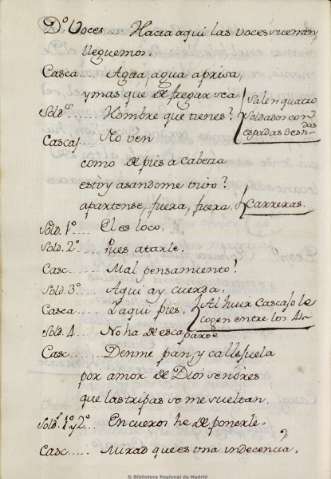 D.º Voces. Hacia aqui las voces suenan,
lleguemos.
Casca..... Agua, agua aprisa,
y mas que de fregar sea
Sold.º.... Hombre que tienes?
Salen quatro
Soldados con
espadas desnu-
das
Cascaj.... No ven
como de pies a cabeza
estoy asandome vivo?
apartense, fuera, fuera.
Carreras.
Sold. 1º... El es loco.
Sold. 2º... pues atarle.
Casc...... Mal pensamiento!
Sold. 3º... Aqui ay cuerda.
Casca.... Y aqui pies.
Al huir Cascajo le
cogen entre los 4.
Sold. 4.... No ha de escaparse
Casc..... Denme pan, y callejuela
por amor de Dios señores
que las tripas se me sueltan.
Sold. 1º y 2º.. En cueros he de ponerle.
Casc...... Mirad que es una indecencia.
© Biblioteca Nacional de Madrid